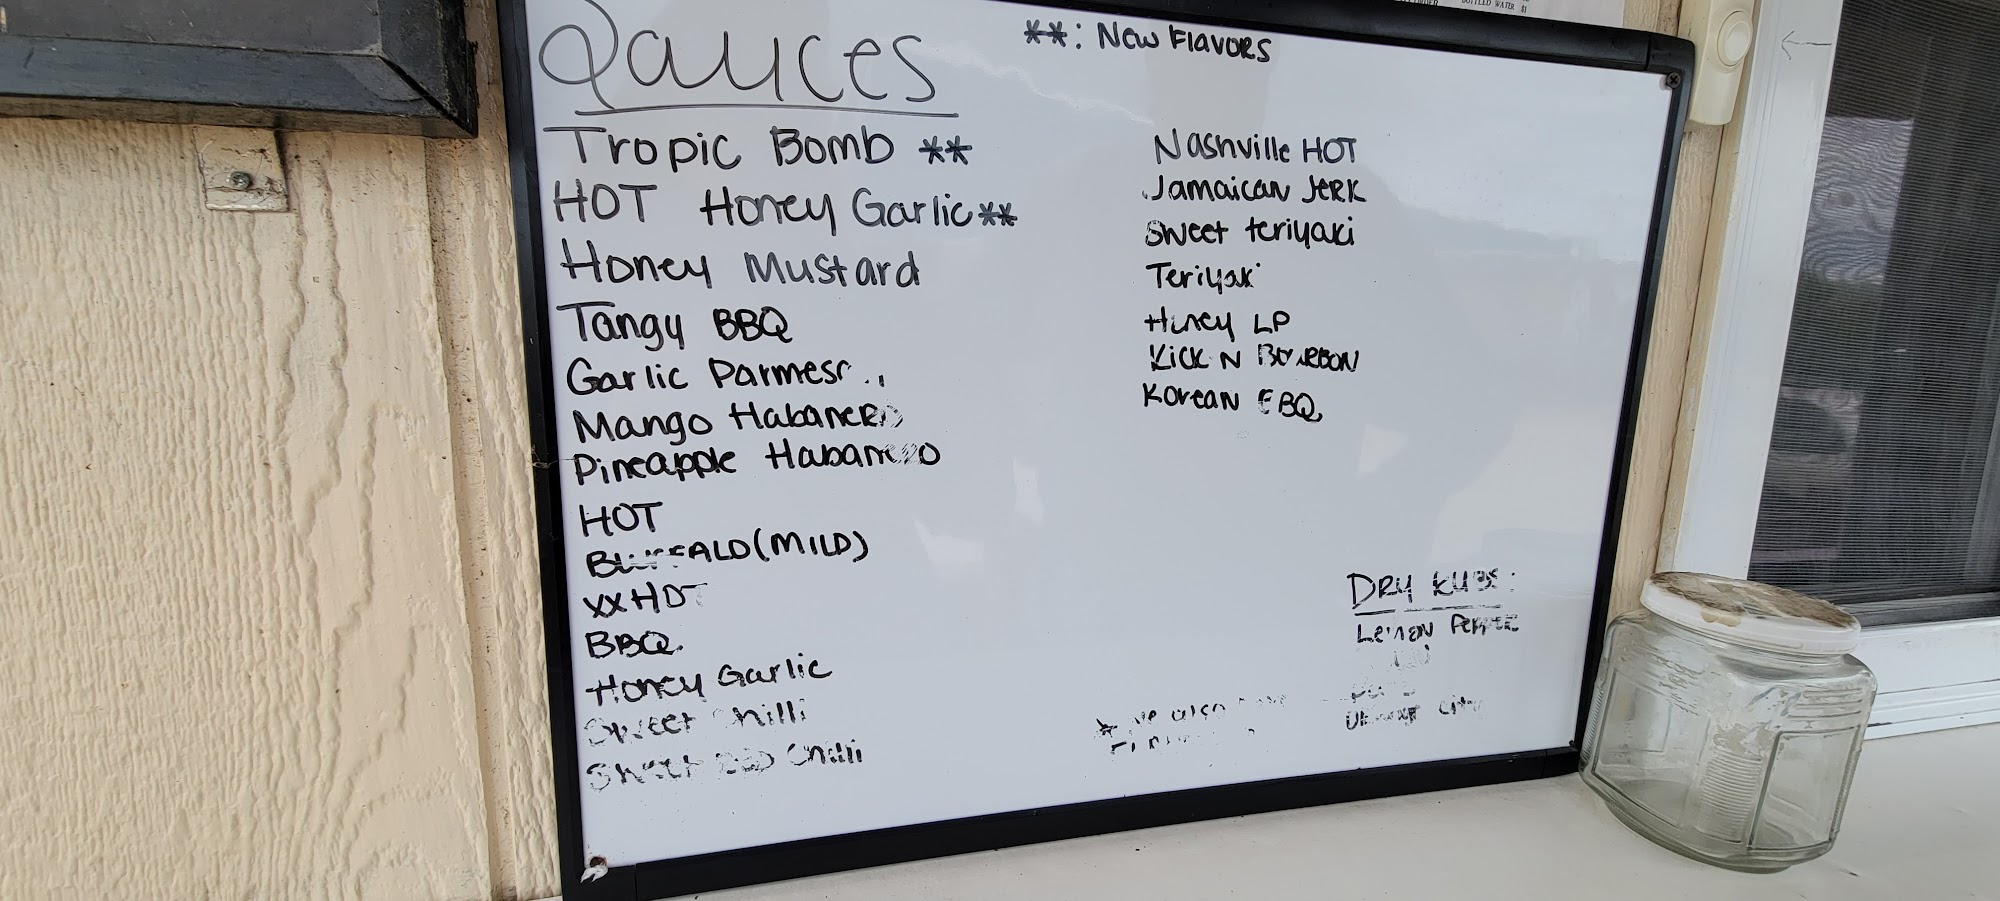 BOTTLED WATER $1
Sauces
**: New Flavors
Tropic Bomb **
HOT Honey Garlic**
Honey Mustard
Tangy BBQ
Garlic
Mango Habanero
Pineapple Habanero
HOT
BUFFALO (MILD)
XXHOT
BBQ
Honey Garlic
Sweet Chilli
Sweet Chilli
Nashville HOT
Jamaican JERK
Sweet teriyaki
Teriyaki
Honey LP
Kick N BOURBON
Korean BBQ
DRY RUBS:
Lemon PEPPER
City
* we also have